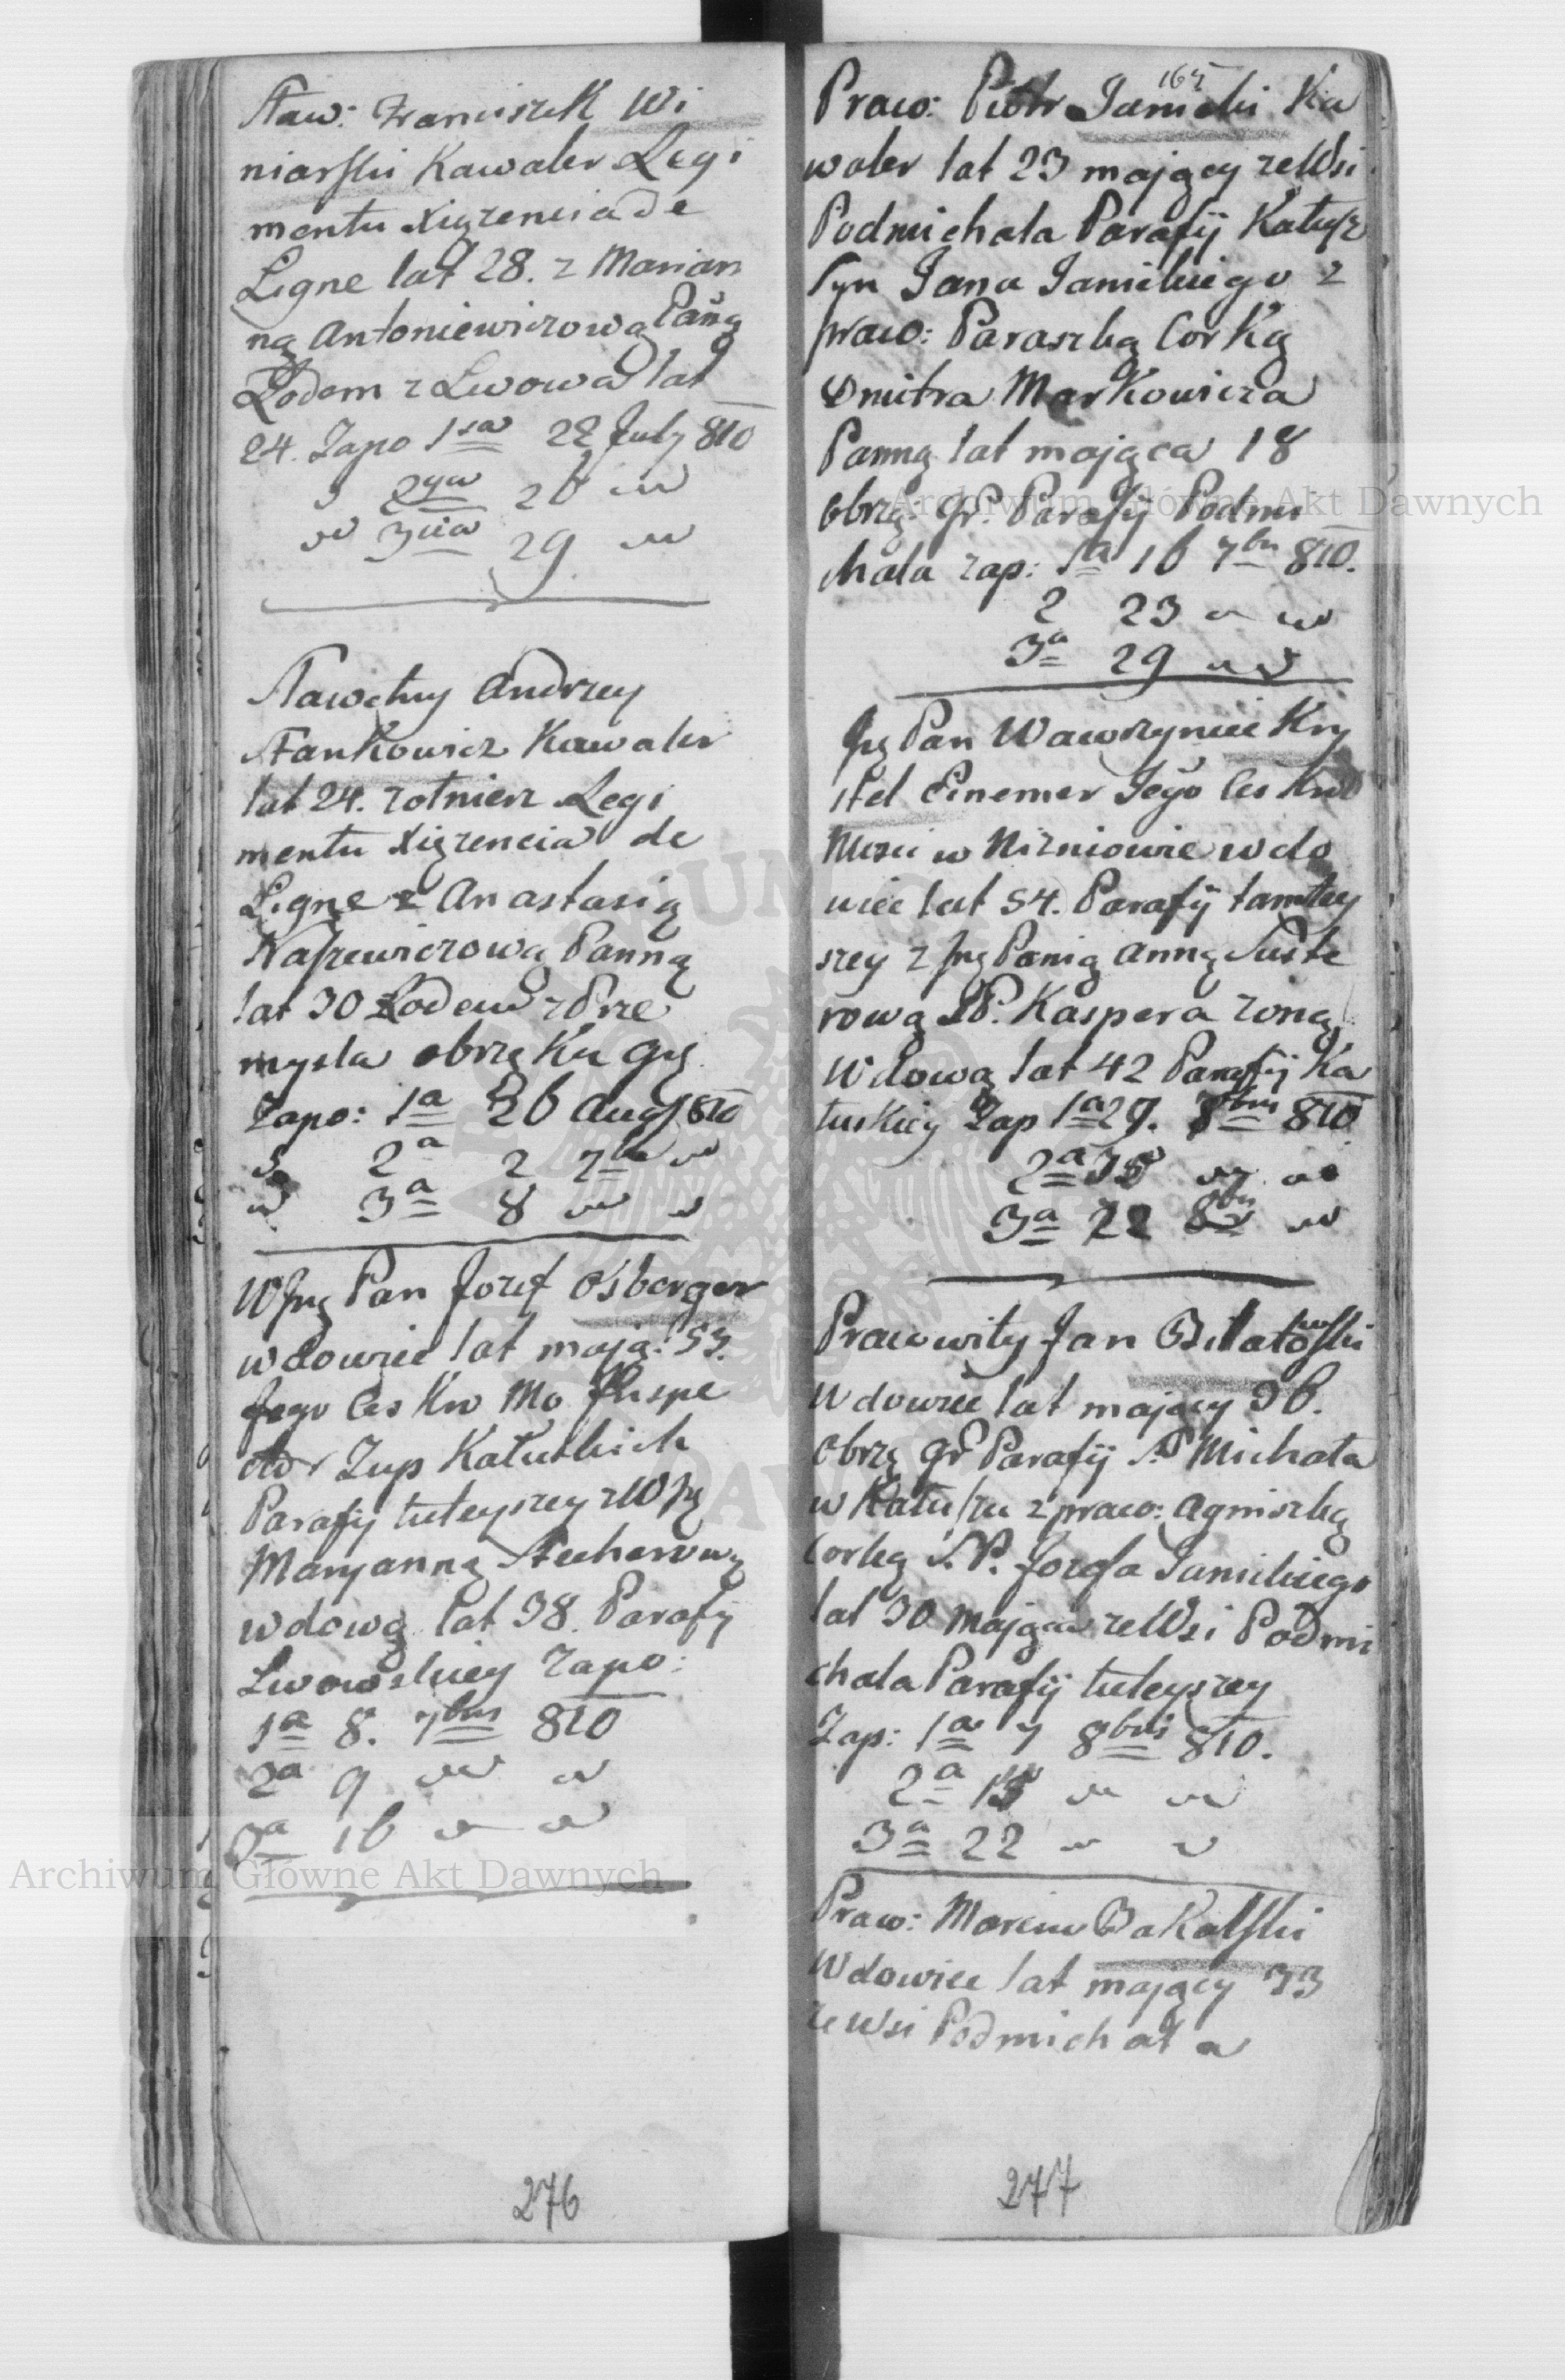 Sław: Franciszek Wi
niarski Kawaler Legi
mentu Xiązencia de
Ligne lat 28. z Marian
ną Antoniewiczową Pañą
Rodem z Lwowa lat
24. Zapo 1sza 22 July 810
2ga 26
3cia 29
Sławetny Andrzey
Stankowicz Kawaler
lat 24. zołnierz Legi
mentu Xiązencia de
Ligne z Anastasią
Panną
lat 30 Rodem z Prze
mysla obrząKu Gr̄.
Zapo: 1a 26 Aug 810
2a 2 7br
3a 8
WJP Pan Jozef Osberger
wdowiec lat mają: 53.
Jego Ces Kro Mo Jnspe
ktor Zup Kałuskich
Parafij tuteyszey z WJP
Maryanną Stecherową
wdową lat 38. Parafij
Lwowskiey Zapo:
1a 8. 7bris 810
2a 9
3a 16
276
164
Praw: Piotr Janicki Ka
waler lat 23 mający ze Wsi
Podmichala Parafij Kałusz
Syn Jana Janickiego z
praw: Paraszką CorKą
Dmitra MarKowicza
Panną lat mająca 18
Obrzą: Gr. Parafij Podmi
chala zap: 1a 16 7br 810.
2 23
3a 29
Pan Wawrzyniec Kry
stel Einemer Jego Ces Kro
Mosci w Nizniowie wdo
wiec lat 54. Parafij tamtey
szey z Panią Anną
rową SP. Kaspera zoną
Wdową lat 42 Parafij Ka
łuskiey Zap 1a 29. 7bris 810
2a
3a 22 8br
Pracowity Jan Biłatowski
Wdowiec lat mający 36.
Obrzą Gr Parafij S. Michała
w Kałuszu z praw: Agniszką
Corką S.P. Jozefa Janickiego
lat 30 mająca ze Wsi Podmi
chala Parafij tuteyszey
Zap: 1a 7 8bris 810.
2a 15
3a 22
Praw: Marcin BaKalski
Wdowiec lat mający 33
ze wsi Podmichała
277
Archiwum Główne Akt Dawnych
Archiwum Główne Akt Dawnych